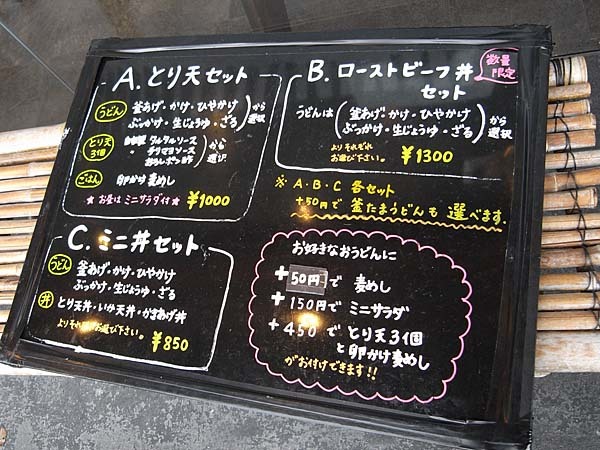 A. とり天セット
うどん 釜あげ・かけ・ひやかけ
ぶっかけ・生じょうゆ・ざる から選択
とり天3個 自家製 タルタルソース
〃 チリマヨソース
おろしポン酢 から選択
ごはん 卵かけ麦めし
★ お昼は ミニサラダ付 ★ ¥1000
B. ローストビーフ丼
セット
数量限定
うどんは 釜あげ・かけ・ひやかけ
ぶっかけ・生じょうゆ・ざる から選択
よりそれぞれ
お選び下さい。 ¥1300
※ A・B・C 各セット
+50円で 釜たまうどんも 選べます。
C. ミニ丼セット
うどん 釜あげ・かけ・ひやかけ
ぶっかけ・生じょうゆ・ざる
丼 とり天丼・いか天丼・かきあげ丼
よりそれぞれお選び下さい。 ¥850
お好きなおうどんに
+50円で 麦めし
+150円で ミニサラダ
+450で とり天3個
と卵かけ麦めし
がお付けできます!!